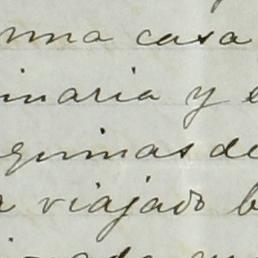 una casa
inaria y e
quinas de
a viajado b